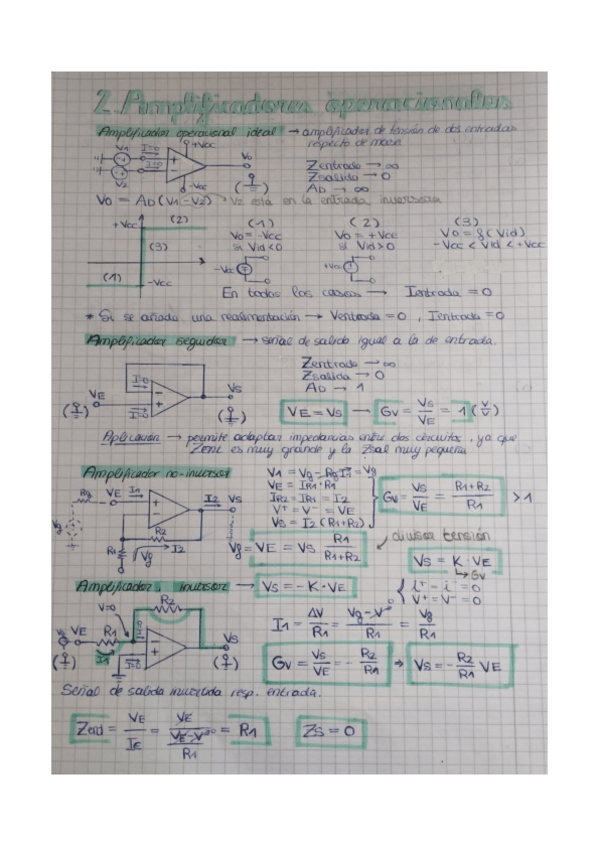 2. Amplificadores operacionales
Amplificador operacional ideal → amplificador de tensión de dos entradas
respecto de masa
+Vcc
V1 I=0 + Vo Zentrada → ∞
I=0 - Zsalida → 0
V2 -Vcc AD → ∞
Vo = AD (V1 - V2) → V2 está en la entrada inversora
+Vcc (2) (1) (2) (3)
Vo = -Vcc Vo = +Vcc Vo = f(Vid)
(3) si Vid<0 si Vid>0 -Vcc < Vid < +Vcc
(1) -Vcc -Vcc +Vcc
En todos los casos → Ientrada = 0
* Si se añade una realimentación → Ventrada = 0 , Ientrada = 0
Amplificador seguidor → señal de salida igual a la de entrada.
Zentrada → ∞
Zsalida → 0
I=0 AD → 1
VE I=0 VS VE = VS → Gv = VS/VE = 1 (V/V)
Aplicación → permite adaptar impedancias entre dos circuitos, ya que
Zent es muy grande y la Zsal muy pequeña
Amplificador no-inversor V1 = Vg - Rg I1 = Vg
Rg VE I1 I2 VS VE = IR1 · R1
IR2 = IR1 = I2 Gv = VS/VE = (R1+R2)/R1 > 1
V+ = V- = VE
Vg R2 VS = I2 (R1+R2)
R1 Vg I2 Vg = VE = VS R1/(R1+R2) divisor tensión
VS = K · VE
Gv
Amplificador inversor → VS = -K · VE
i+ = i- = 0
V+ = V- = 0
V=0 R2
VE R1 I=0 VS I1 = ΔV/R1 = (Vg - V-⁰)/R1 = Vg/R1
I1 I=0 Gv = VS/VE = - R2/R1 → VS = - R2/R1 VE
Señal de salida invertida resp. entrada.
Zent = VE/IE = VE/((VE - V-⁰)/R1) = R1 ZS = 0